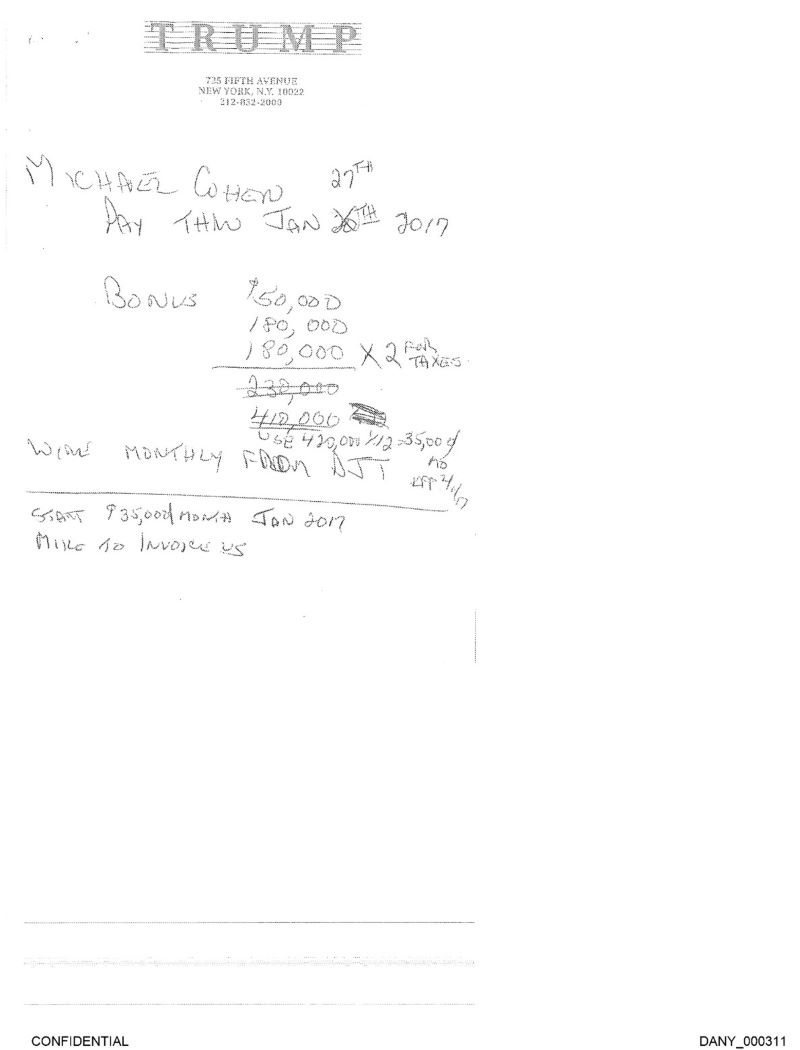 TRUMP
725 FIFTH AVENUE
NEW YORK, N.Y. 10022
212-832-2000
MICHAEL COHEN 27TH
PAY THRU JAN TH 2017
BONUS $50,000
180,000
180,000 X 2 FOR TAXES
230,000
410,000
USE 420,000 1/12 = 35,000/
MO
WIRE MONTHLY FROM DJT
EFF 2/1/17
START $35,000/MONTH JAN 2017
MIKE TO INVOICE US
CONFIDENTIAL
DANY_000311